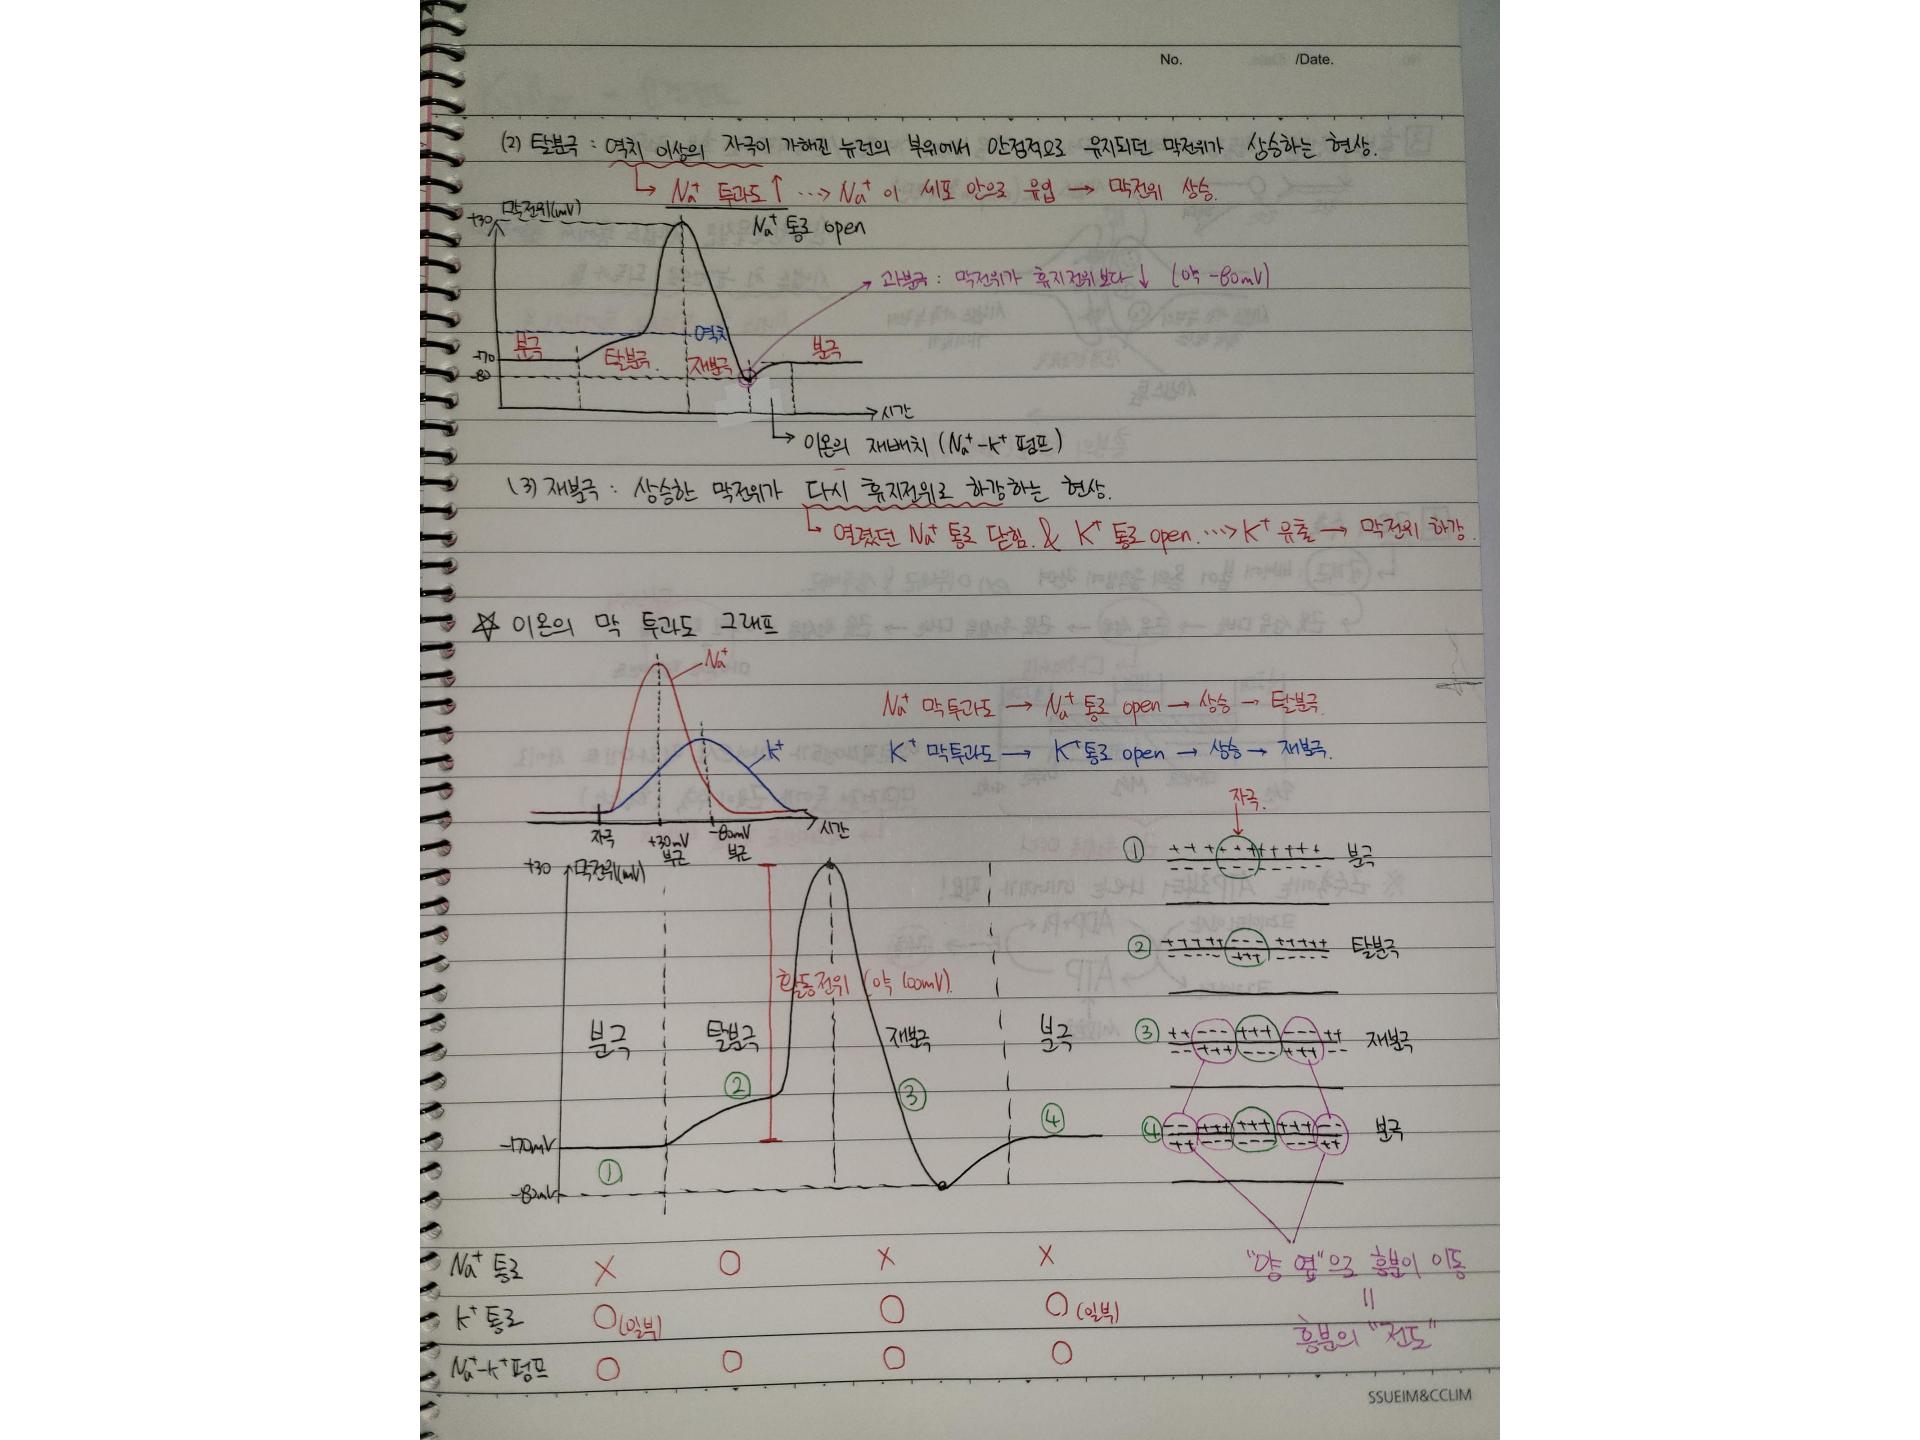 No. /Date.
(2) 탈분극 : 역치 이상의 자극이 가해진 뉴런의 부위에서 안정적으로 유지되던 막전위가 상승하는 현상.
↳ Na⁺ 투과도↑ ⋯→ Na⁺이 세포 안으로 유입 → 막전위 상승.
+30 막전위(mV)
Na⁺ 통로 open
과분극 : 막전위가 휴지전위보다↓ (약 -80mV)
역치
-70 분극 탈분극. 재분극 분극
-80
시간
이온의 재배치 (Na⁺-K⁺ 펌프)
(3) 재분극 : 상승한 막전위가 다시 휴지전위로 하강하는 현상.
↳ 열렸던 Na⁺ 통로 닫힘. & K⁺ 통로 open. ⋯→ K⁺ 유출 → 막전위 하강.
☆ 이온의 막 투과도 그래프
Na⁺
K⁺
자극 +30mV 부근 -80mV 부근 시간
Na⁺ 막투과도 → Na⁺ 통로 open → 상승 → 탈분극.
K⁺ 막투과도 → K⁺ 통로 open → 상승 → 재분극.
+30 막전위(mV)
활동전위 (약 100mV).
분극 탈분극 재분극 분극
② ③
-70mV ④
①
-80mV
자극.
① + + + + + + + + + + 분극
- - - - - - - -
② + + + + + - - - + + + + + 탈분극
- - - - - + + + - - - - -
③ + + - - - + + + - - - + + 재분극
- - + + + - - - + + + - -
④ - - + + + + + + + + + - - 분극
+ + - - - - - - - - - + +
"양 옆"으로 흥분이 이동
=
흥분의 "전도"
Na⁺ 통로 X O X X
K⁺ 통로 O(일부) O O(일부)
Na⁺-K⁺ 펌프 O O O O
SSUEIM&CCLIM